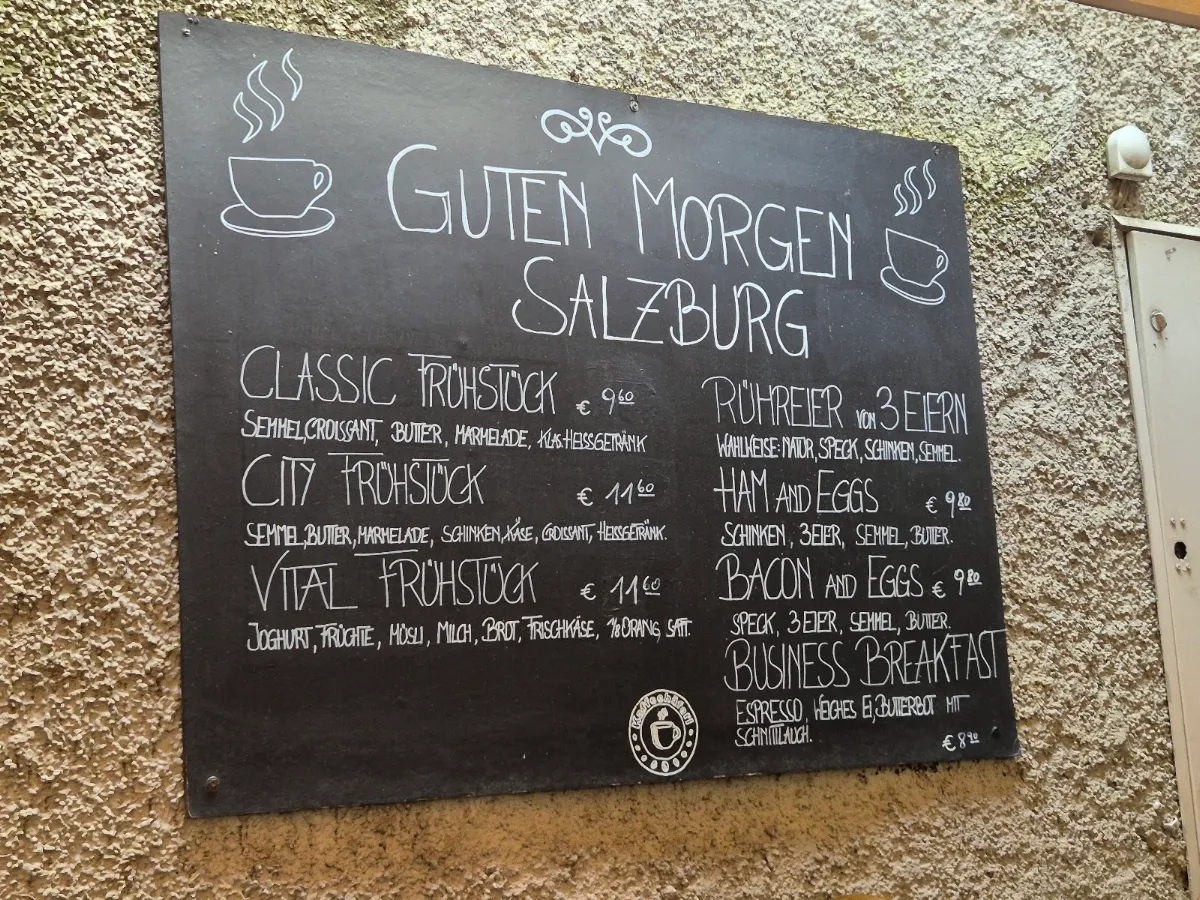 GUTEN MORGEN
SALZBURG
CLASSIC FRÜHSTÜCK € 9 60
SEMMEL, CROISSANT, BUTTER, MARMELADE, KLAS. HEISSGETRÄNK
CITY FRÜHSTÜCK € 11 60
SEMMEL, BUTTER, MARMELADE, SCHINKEN, KÄSE, CROISSANT, HEISSGETRÄNK.
VITAL FRÜHSTÜCK € 11 60
JOGHURT, FRÜCHTE, MÜSLI, MILCH, BROT, FRISCHKÄSE, ORANG, SAFT.
RÜHREIER VON 3 EIERN
WAHLWEISE: NATUR, SPECK, SCHINKEN, SEMMEL.
HAM AND EGGS € 9 80
SCHINKEN, 3 EIER, SEMMEL, BUTTER.
BACON AND EGGS € 9 80
SPECK, 3 EIER, SEMMEL, BUTTER.
BUSINESS BREAKFAST
ESPRESSO, WEICHES EI, BUTTERBOT MIT
SCHNITTLAUCH.
€ 8 90